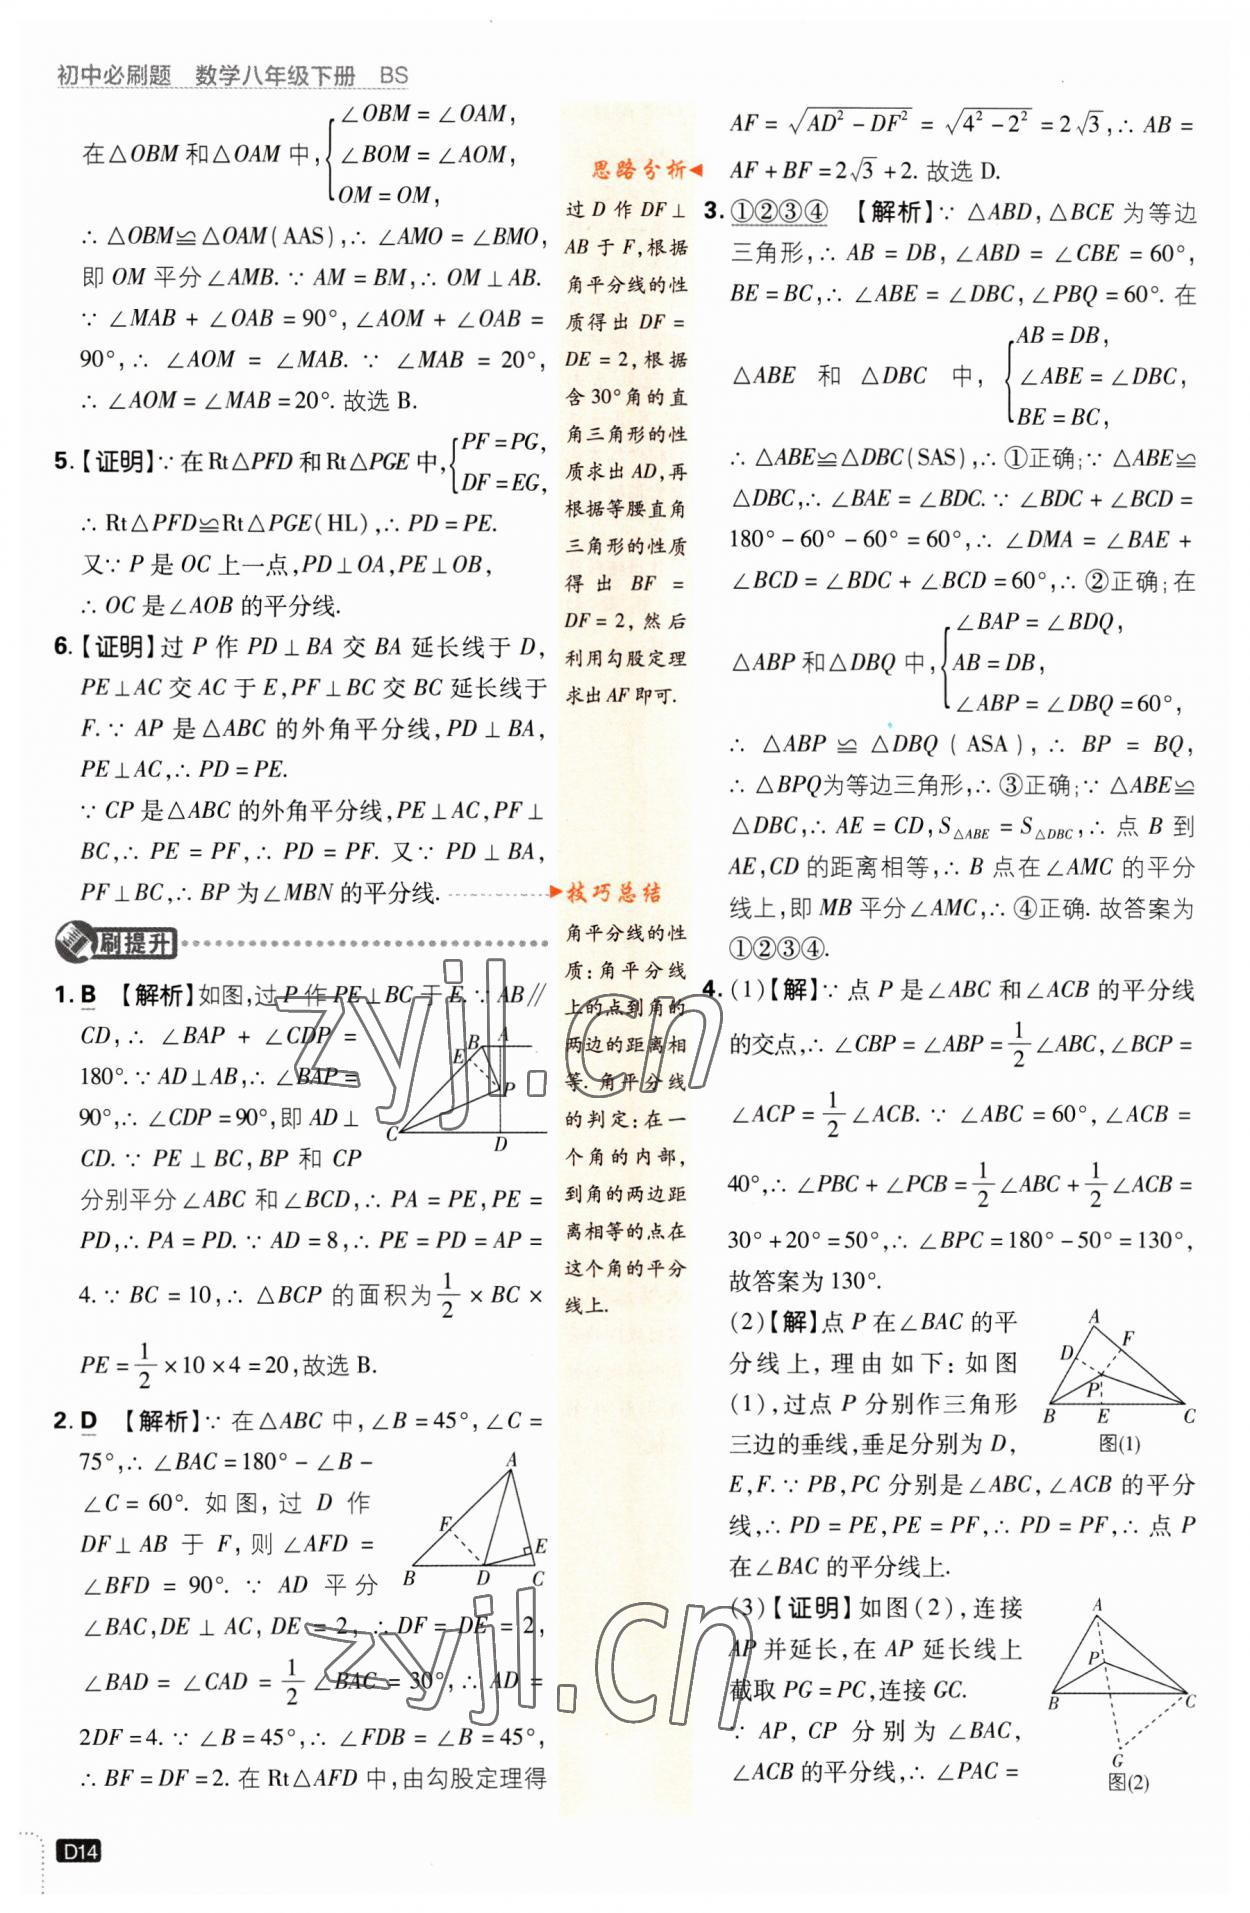 初中必刷题 数学八年级下册 BS
在△OBM 和△OAM 中,
∠OBM = ∠OAM,
∠BOM = ∠AOM,
OM = OM,
∴ △OBM≌△OAM(AAS),∴ ∠AMO = ∠BMO,
即 OM 平分∠AMB. ∵ AM = BM,∴ OM⊥AB.
∵ ∠MAB + ∠OAB = 90°,∠AOM + ∠OAB =
90°,∴ ∠AOM = ∠MAB. ∵ ∠MAB = 20°,
∴ ∠AOM = ∠MAB = 20°. 故选 B.
5.【证明】∵ 在Rt△PFD 和Rt△PGE 中,
PF = PG,
DF = EG,
∴ Rt△PFD≌Rt△PGE(HL),∴ PD = PE.
又∵ P 是 OC 上一点,PD⊥OA,PE⊥OB,
∴ OC 是∠AOB 的平分线.
6.【证明】过 P 作 PD⊥BA 交 BA 延长线于 D,
PE⊥AC 交 AC 于 E,PF⊥BC 交 BC 延长线于
F. ∵ AP 是△ABC 的外角平分线,PD⊥BA,
PE⊥AC,∴ PD = PE.
∵ CP 是△ABC 的外角平分线,PE⊥AC,PF⊥
BC,∴ PE = PF,∴ PD = PF. 又∵ PD⊥BA,
PF⊥BC,∴ BP 为∠MBN 的平分线.
刷提升
1. B 【解析】如图,过 P 作 PE⊥BC 于 E. ∵ AB∥
CD,∴ ∠BAP + ∠CDP =
180°. ∵ AD⊥AB,∴ ∠BAP =
90°,∴ ∠CDP = 90°,即 AD⊥
CD. ∵ PE⊥BC,BP 和 CP
分别平分∠ABC 和∠BCD,∴ PA = PE,PE =
PD,∴ PA = PD. ∵ AD = 8,∴ PE = PD = AP =
4. ∵ BC = 10,∴ △BCP 的面积为 1/2 × BC ×
PE = 1/2 × 10 × 4 = 20,故选 B.
B A E P C D
2. D 【解析】∵ 在△ABC 中,∠B = 45°,∠C =
75°,∴ ∠BAC = 180° - ∠B -
∠C = 60°. 如图,过 D 作
DF⊥AB 于 F,则∠AFD =
∠BFD = 90°. ∵ AD 平分
∠BAC,DE⊥AC,DE = 2,∴ DF = DE = 2,
∠BAD = ∠CAD = 1/2 ∠BAC = 30°,∴ AD =
2DF = 4. ∵ ∠B = 45°,∴ ∠FDB = ∠B = 45°,
∴ BF = DF = 2. 在 Rt△AFD 中,由勾股定理得
A F E B D C
思路分析
过 D 作 DF⊥
AB 于 F,根据
角平分线的性
质得出 DF =
DE = 2,根据
含30°角的直
角三角形的性
质求出 AD,再
根据等腰直角
三角形的性质
得出 BF =
DF = 2,然后
利用勾股定理
求出 AF 即可.
技巧总结
角平分线的性
质:角平分线
上的点到角的
两边的距离相
等.角平分线
的判定:在一
个角的内部,
到角的两边距
离相等的点在
这个角的平分
线上.
AF = √(AD² - DF²) = √(4² - 2²) = 2√3,∴ AB =
AF + BF = 2√3 + 2. 故选 D.
3. ①②③④ 【解析】∵ △ABD,△BCE 为等边
三角形,∴ AB = DB,∠ABD = ∠CBE = 60°,
BE = BC,∴ ∠ABE = ∠DBC,∠PBQ = 60°. 在
△ABE 和 △DBC 中,
AB = DB,
∠ABE = ∠DBC,
BE = BC,
∴ △ABE≌△DBC(SAS),∴ ①正确;∵ △ABE≌
△DBC,∴ ∠BAE = ∠BDC. ∵ ∠BDC + ∠BCD =
180° - 60° - 60° = 60°,∴ ∠DMA = ∠BAE +
∠BCD = ∠BDC + ∠BCD = 60°,∴ ②正确;在
△ABP 和△DBQ 中,
∠BAP = ∠BDQ,
AB = DB,
∠ABP = ∠DBQ = 60°,
∴ △ABP ≌ △DBQ ( ASA ), ∴ BP = BQ,
∴ △BPQ为等边三角形,∴ ③正确;∵ △ABE≌
△DBC,∴ AE = CD,S△ABE = S△DBC,∴ 点 B 到
AE,CD 的距离相等,∴ B 点在∠AMC 的平分
线上,即 MB 平分∠AMC,∴ ④正确. 故答案为
①②③④.
4. (1)【解】∵ 点 P 是∠ABC 和∠ACB 的平分线
的交点,∴ ∠CBP = ∠ABP = 1/2 ∠ABC,∠BCP =
∠ACP = 1/2 ∠ACB. ∵ ∠ABC = 60°,∠ACB =
40°,∴ ∠PBC + ∠PCB = 1/2 ∠ABC + 1/2 ∠ACB =
30° + 20° = 50°,∴ ∠BPC = 180° - 50° = 130°,
故答案为 130°.
(2)【解】点 P 在∠BAC 的平
分线上,理由如下:如图
(1),过点 P 分别作三角形
三边的垂线,垂足分别为 D,
E,F. ∵ PB,PC 分别是∠ABC,∠ACB 的平分
线,∴ PD = PE,PE = PF,∴ PD = PF,∴ 点 P
在∠BAC 的平分线上.
A F D P B E C
图(1)
(3)【证明】如图(2),连接
AP 并延长,在 AP 延长线上
截取 PG = PC,连接 GC.
∵ AP, CP 分别为∠BAC,
∠ACB 的平分线,∴ ∠PAC =
A P B C G
图(2)
D14
zyjl.cn
zyjl.cn